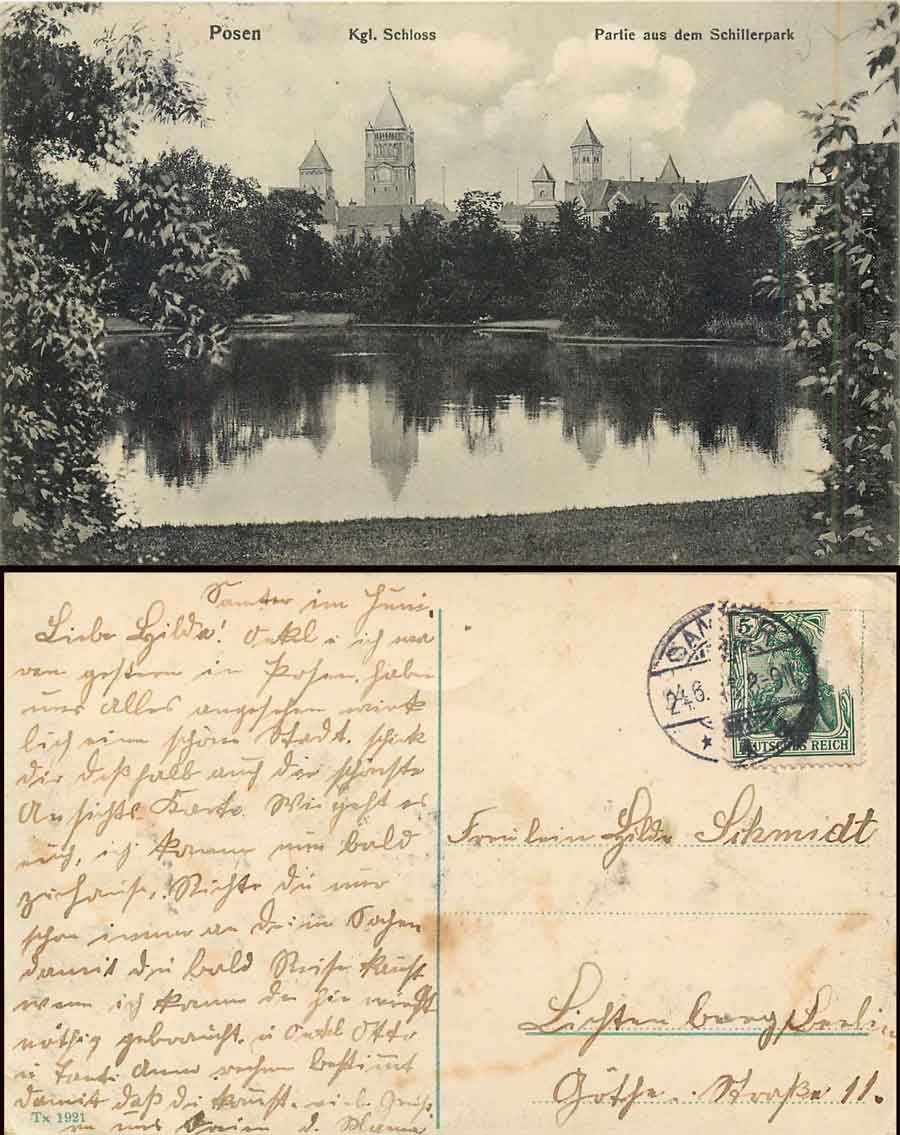 Posen Kgl. Schloss Partie aus dem Schillerpark
Samter im Juni.
Liebe Hilda! Onkel u ich wa
ren gestern in Posen, haben
uns Alles angesehen wirk
lich eine schöne Stadt. schick
dir deßhalb auch die schönste
Ansichts Karte. Wie geht es
euch, ich komme nun bald
zuhause. Richte du nur
schon immer an deine Sachen
damit du bald Reisen kanst
wenn ich komme du hir nicht
nöthig gebrauchst. u Onkel Otto
u Tante Anna rechnen bestimmt
damit daß du komst. viel. Grüß.
von uns d. Mama
Tx 1921
SAMTER
24.6.
5
DEUTSCHES REICH
Freulein Hilda Schmidt
Lichtenberg/Berlin
Göthe. Straße 11.